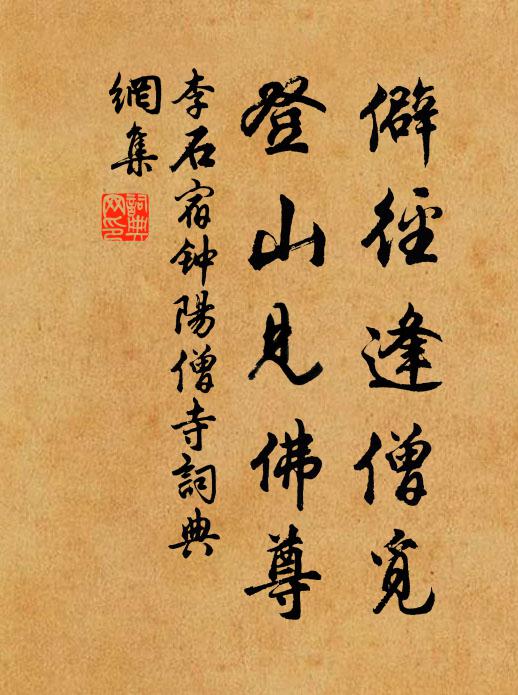 僻徑逢僧覓
登山見佛尊
李石宿钟陽僧寺詞典
網集
詞典
网印